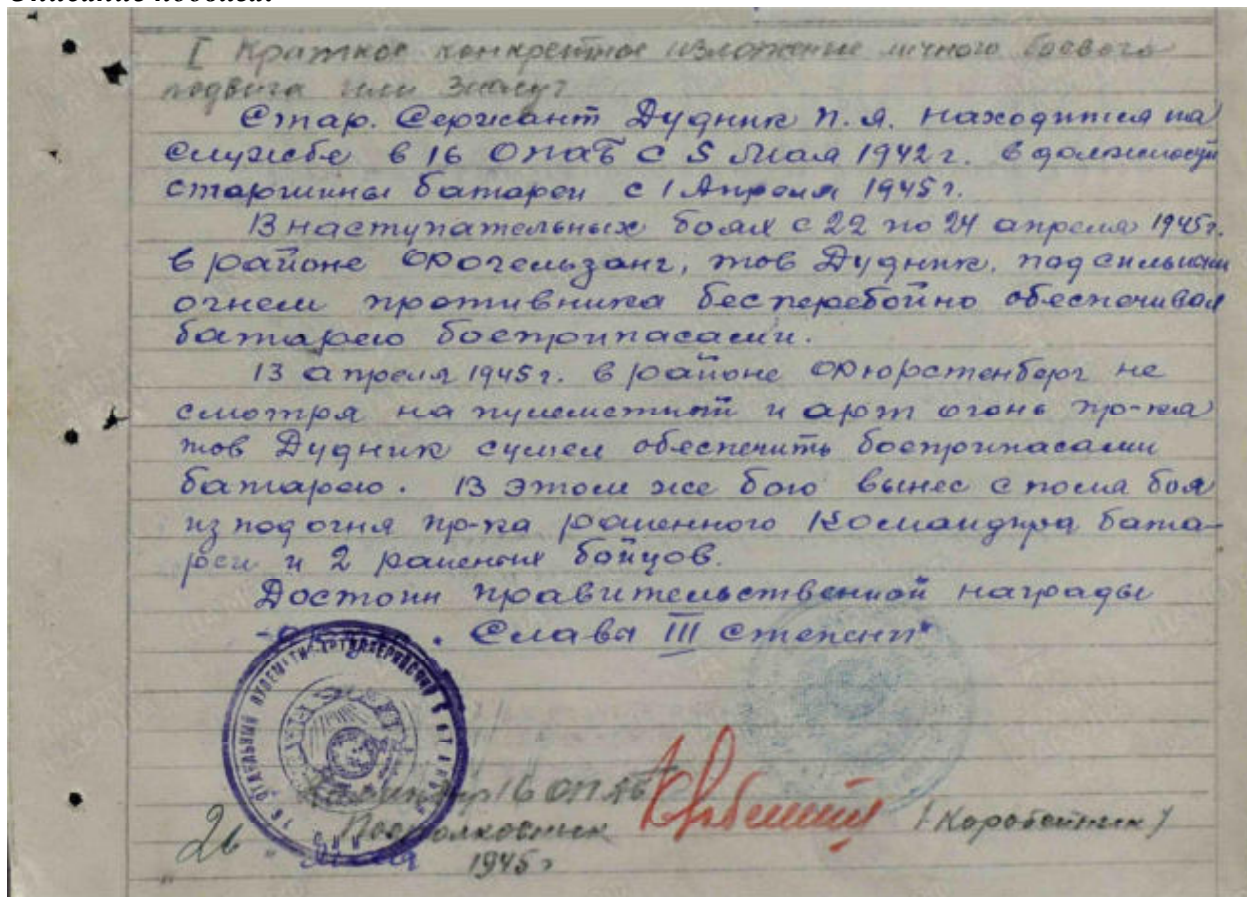 Описание подвига:
I Краткое конкретное изложение личного боевого
подвига или заслуг
Стар. Сержант Дудник П. Я. находится на
службе в 16 ОПАБ с 5 Мая 1942 г. в должности
старшины батареи с 1 Апреля 1945 г.
В наступательных боях с 22 по 24 апреля 1945 г.
в районе Фогельзанг, тов Дудник. под сильным
огнем противника бесперебойно обеспечивал
батарею боеприпасами.
13 апреля 1945 г. в районе Фюрстенберг не
смотря на пулеметный и арт огонь пр-ка
тов Дудник сумел обеспечить боеприпасами
батарею. В этом же бою вынес с поля боя
из под огня пр-ка раненного Командира бата-
реи и 2 раненых бойцов.
Достоин правительственной награды
Слава III степени"
16 ОТДЕЛЬНЫЙ ПУЛЕМЕТНО-АРТИЛЛЕРИЙСКИЙ БАТАЛЬОН
Командир 16 ОПАБ
Подполковник /Коробейник/
26 " Мая 1945 г